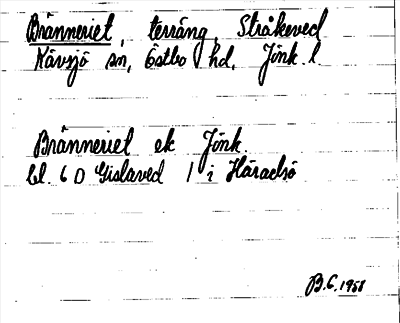 Bränneriet, terräng, Stråkeved
Kävsjö sn, Östbo hd, Jönk. l.
Bränneriet ek Jönk.
bl. 6 D Gislaved 1 i Häradsö
B.G. 1958